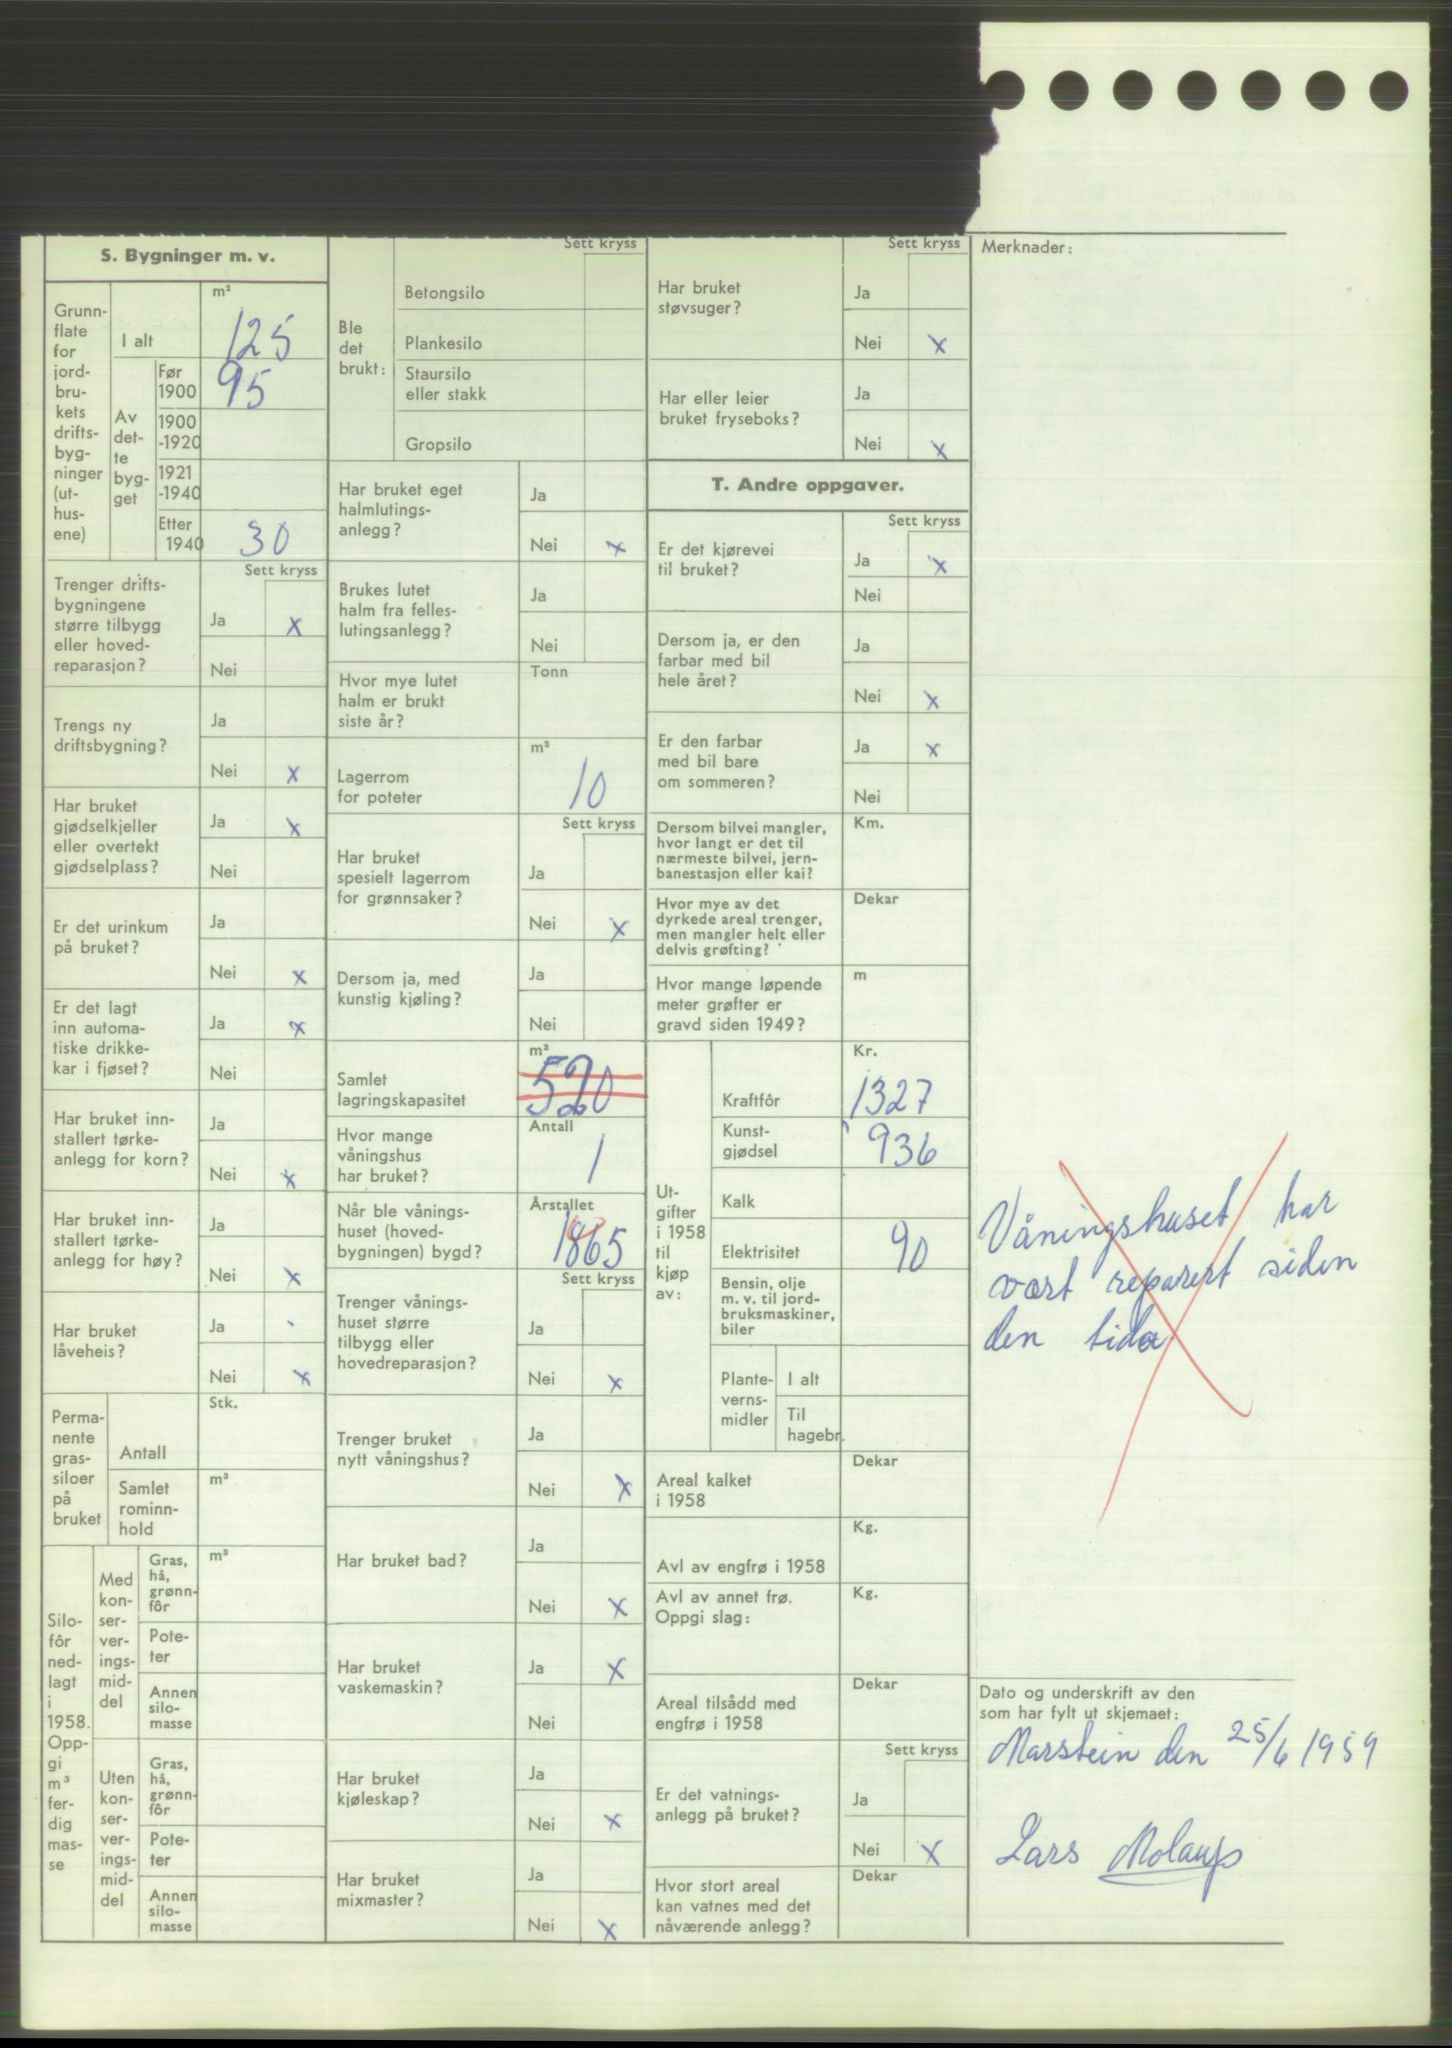 S. Bygninger m. v.
Grunn-
flate
for
jord-
bru-
kets
drifts-
byg-
ninger
(ut-
hus-
ene)
I alt
m²
125
Av
det-
te
byg-
get
Før
1900
95
1900
-1920
1921
-1940
Etter
1940
30
Sett kryss
Trenger drifts-
bygningene
større tilbygg
eller hoved-
reparasjon?
Ja x
Nei
Trengs ny
driftsbygning?
Ja
Nei x
Har bruket
gjødselkjeller
eller overtekt
gjødselplass?
Ja x
Nei
Er det urinkum
på bruket?
Ja
Nei x
Er det lagt
inn automa-
tiske drikke-
kar i fjøset?
Ja x
Nei
Har bruket inn-
stallert tørke-
anlegg for korn?
Ja
Nei x
Har bruket inn-
stallert tørke-
anlegg for høy?
Ja
Nei x
Har bruket
låveheis?
Ja
Nei x
Perma-
nente
gras-
siloer
på
bruket
Stk.
Antall
Samlet
rominn-
hold
m³
Silo-
fôr
ned-
lagt
i
1958.
Opp-
gi
m³
fer-
dig
mas-
se
Med
kon-
ser-
ver-
ings-
mid-
del
Gras,
hå,
grønn-
fôr
m³
Pote-
ter
Annen
silo-
masse
Uten
kon-
ser-
ver-
ings-
mid-
del
Gras,
hå,
grønn-
fôr
Pote-
ter
Annen
silo-
masse
Ble
det
brukt:
Sett kryss
Betongsilo
Plankesilo
Staursilo
eller stakk
Gropsilo
Har bruket eget
halmlutings-
anlegg?
Ja
Nei x
Brukes lutet
halm fra felles-
lutingsanlegg?
Ja
Nei
Hvor mye lutet
halm er brukt
siste år?
Tonn
Lagerrom
for poteter
m³
10
Sett kryss
Har bruket
spesielt lagerrom
for grønnsaker?
Ja
Nei x
Dersom ja, med
kunstig kjøling?
Ja
Nei
Samlet
lagringskapasitet
m³
520
Hvor mange
våningshus
har bruket?
Antall
1
Når ble vånings-
huset (hoved-
bygningen) bygd?
Årstallet
1865
Sett kryss
Trenger vånings-
huset større
tilbygg eller
hovedreparasjon?
Ja
Nei x
Trenger bruket
nytt våningshus?
Ja
Nei x
Har bruket bad?
Ja
Nei x
Har bruket
vaskemaskin?
Ja x
Nei
Har bruket
kjøleskap?
Ja
Nei x
Har bruket
mixmaster?
Ja
Nei x
Sett kryss
Har bruket
støvsuger?
Ja
Nei x
Har eller leier
bruket fryseboks?
Ja
Nei x
T. Andre oppgaver.
Sett kryss
Er det kjørevei
til bruket?
Ja x
Nei
Dersom ja, er den
farbar med bil
hele året?
Ja
Nei x
Er den farbar
med bil bare
om sommeren?
Ja x
Nei
Dersom bilvei mangler,
hvor langt er det til
nærmeste bilvei, jern-
banestasjon eller kai?
Km.
Hvor mye av det
dyrkede areal trenger,
men mangler helt eller
delvis grøfting?
Dekar
Hvor mange løpende
meter grøfter er
gravd siden 1949?
m
Ut-
gifter
i 1958
til
kjøp
av:
Kr.
Kraftfôr 1327
Kunst-
gjødsel 936
Kalk
Elektrisitet 90
Bensin, olje
m. v. til jord-
bruksmaskiner,
biler
Plante-
verns-
midler
I alt
Til
hagebr.
Areal kalket
i 1958
Dekar
Avl av engfrø i 1958
Kg.
Avl av annet frø.
Oppgi slag:
Kg.
Areal tilsådd med
engfrø i 1958
Dekar
Sett kryss
Er det vatnings-
anlegg på bruket?
Ja
Nei x
Hvor stort areal
kan vatnes med det
nåværende anlegg?
Dekar
Merknader:
Våningshuset har
vært reparert siden
den tida
Dato og underskrift av den
som har fylt ut skjemaet:
Marstein den 25/6 1959
Lars